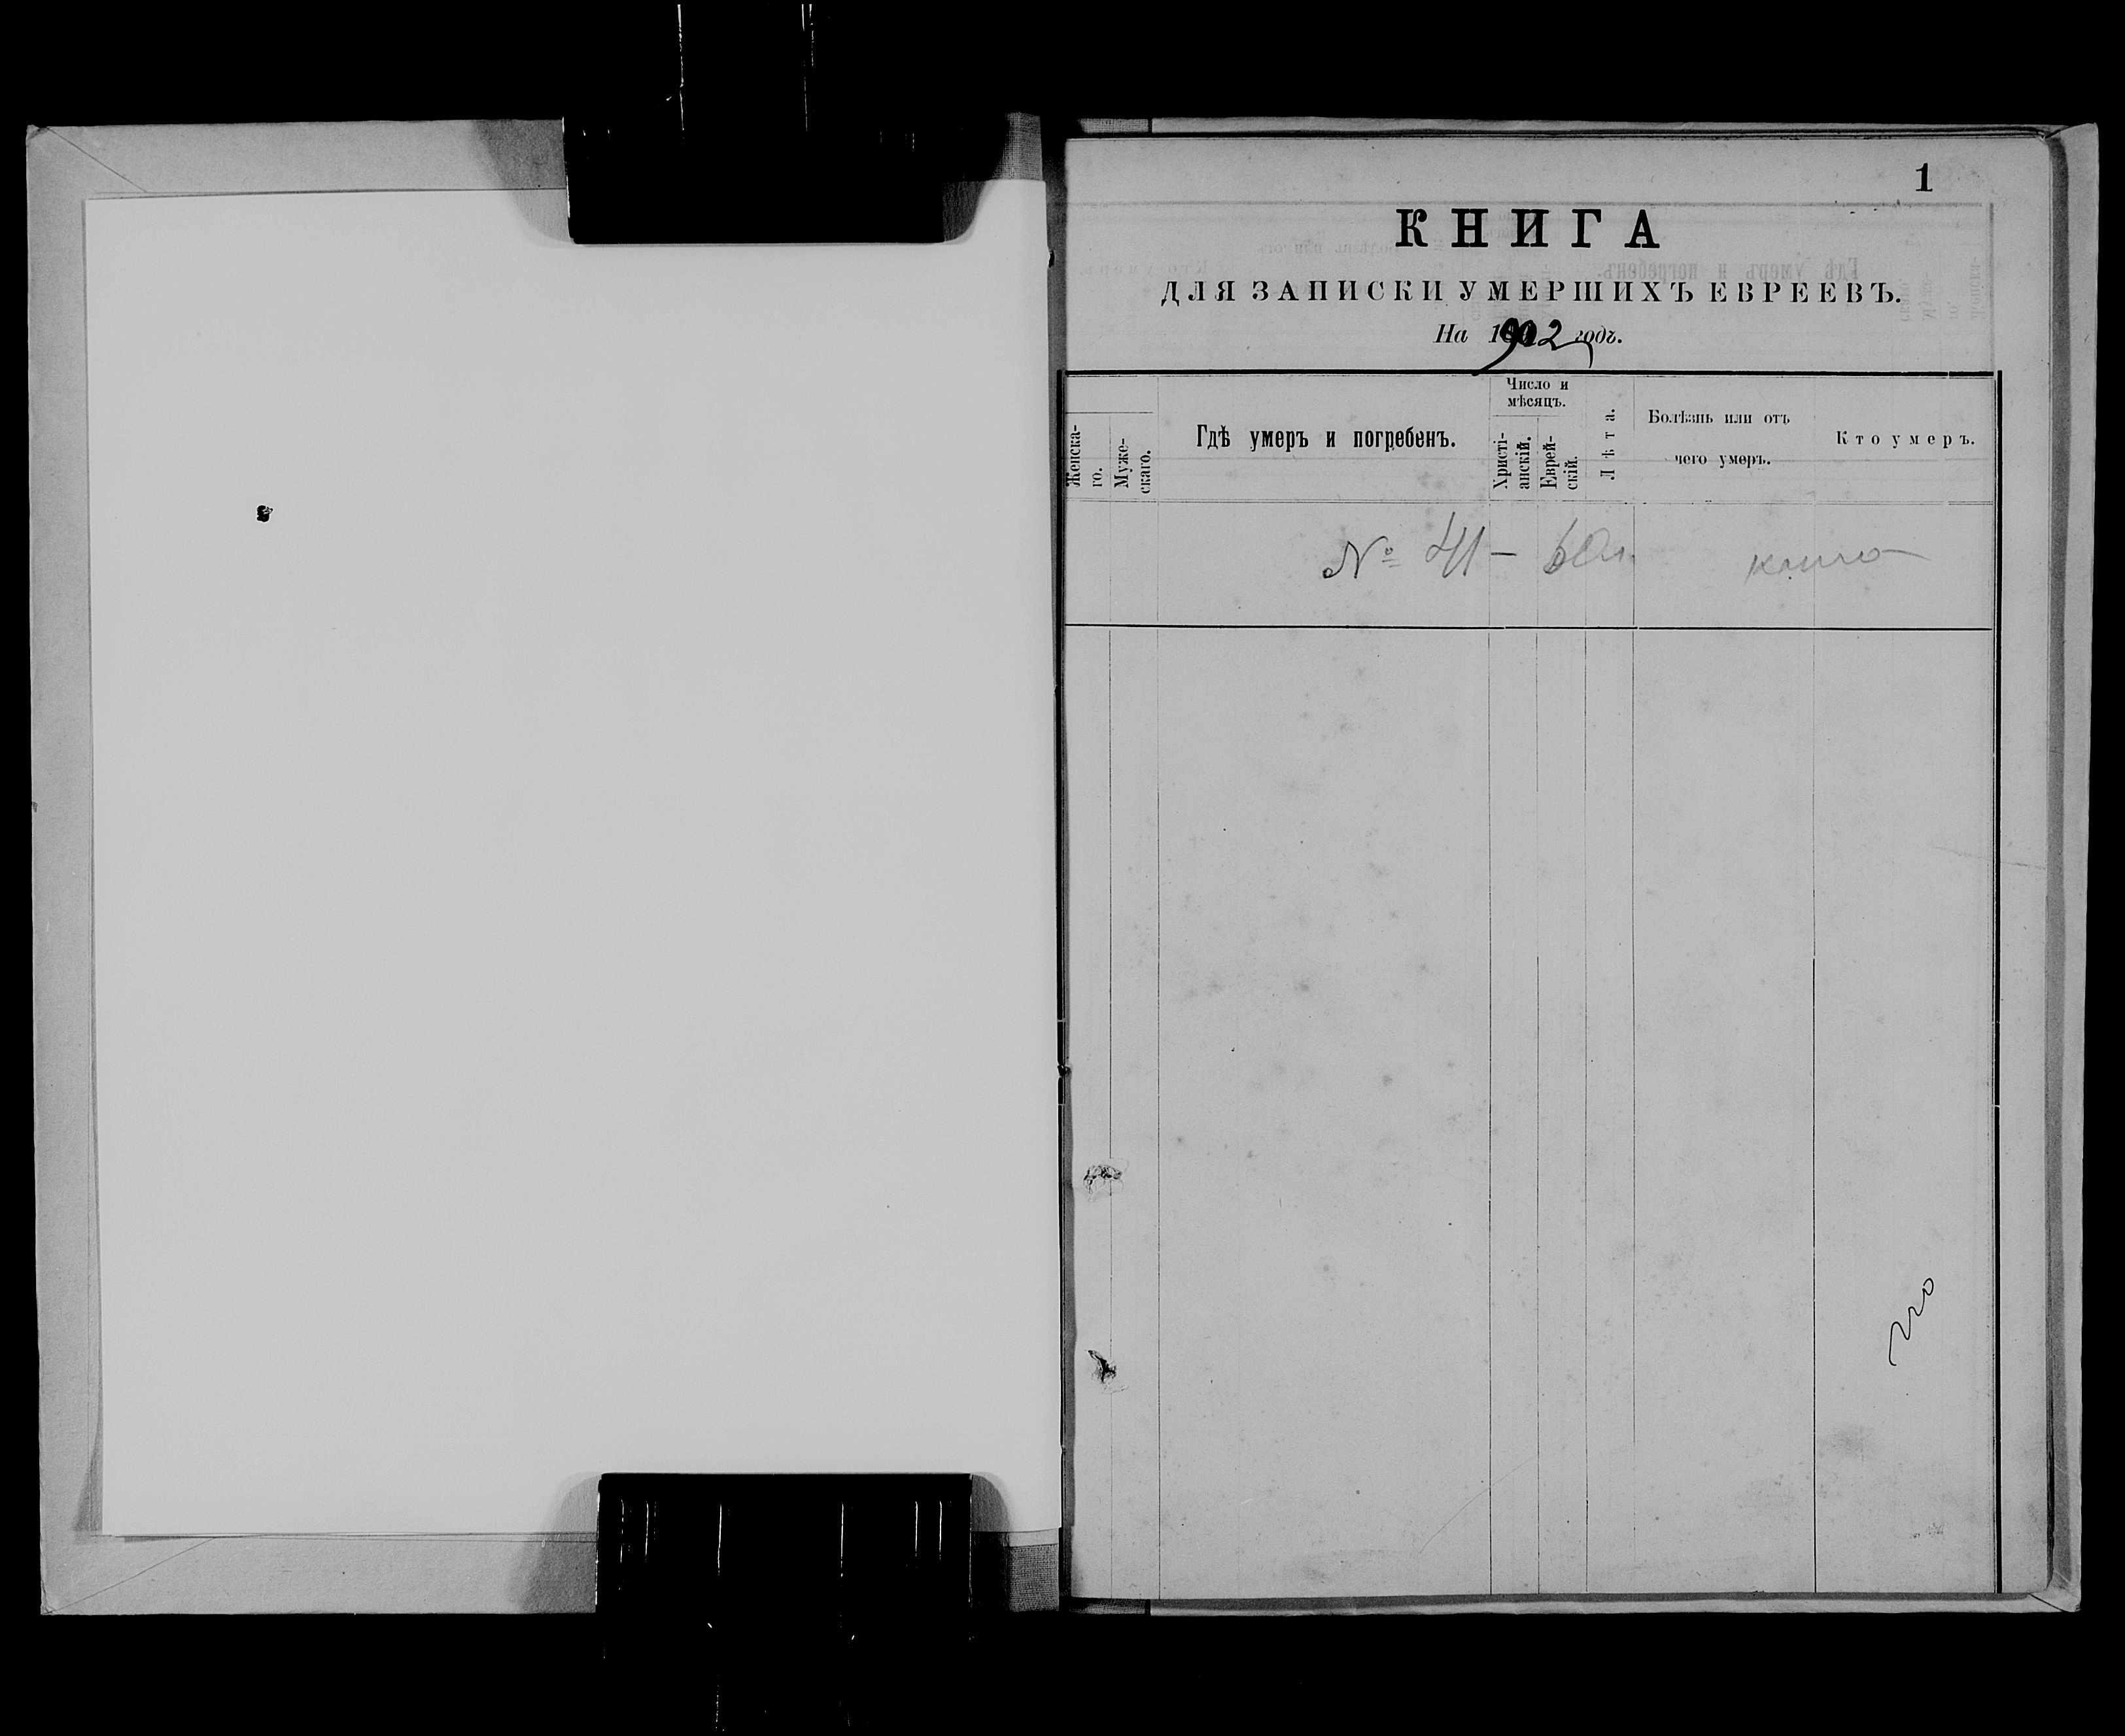 1
КНИГА
ДЛЯ ЗАПИСКИ УМЕРШИХЪ ЕВРЕЕВЪ.
На 1902 годъ.
Женска-
го.
Муже-
скаго.
Гдѣ умеръ и погребенъ.
Число и
мѣсяцъ.
Христі-
анскій.
Еврей-
скій.
Лѣта.
Болѣзнь или отъ
чего умеръ.
Кто умеръ.
№ 41 —